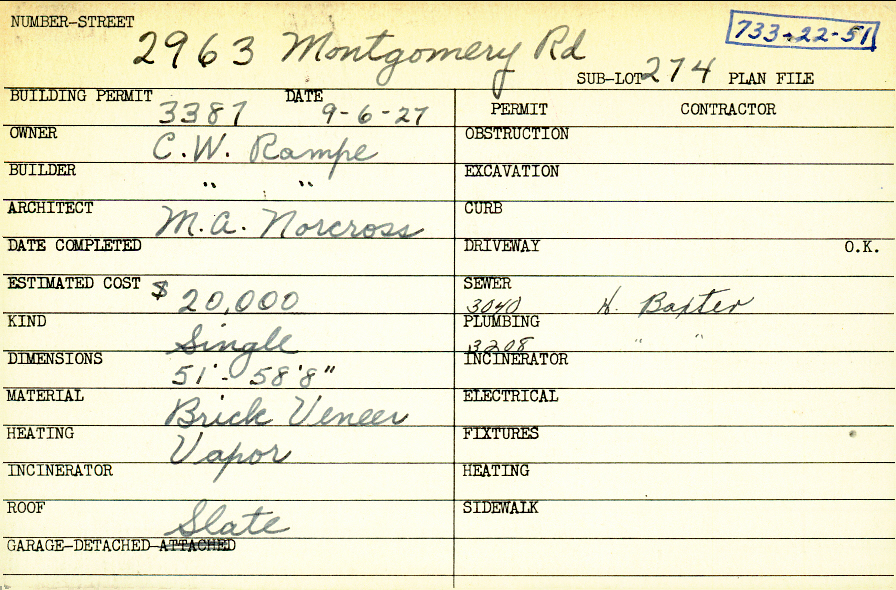 NUMBER-STREET 2963 Montgomery Rd
733-22-51
SUB-LOT 274 PLAN FILE
BUILDING PERMIT 3387 DATE 9-6-27
OWNER C.W. Rampe
BUILDER " "
ARCHITECT M.A. Norcross
DATE COMPLETED
ESTIMATED COST $ 20,000
KIND Single
DIMENSIONS 51' - 58'8"
MATERIAL Brick Veneer
HEATING Vapor
INCINERATOR
ROOF Slate
GARAGE-DETACHED-ATTACHED
PERMIT CONTRACTOR
OBSTRUCTION
EXCAVATION
CURB
DRIVEWAY O.K.
SEWER
3040 H. Baxter
PLUMBING
3208 " "
INCINERATOR
ELECTRICAL
FIXTURES
HEATING
SIDEWALK